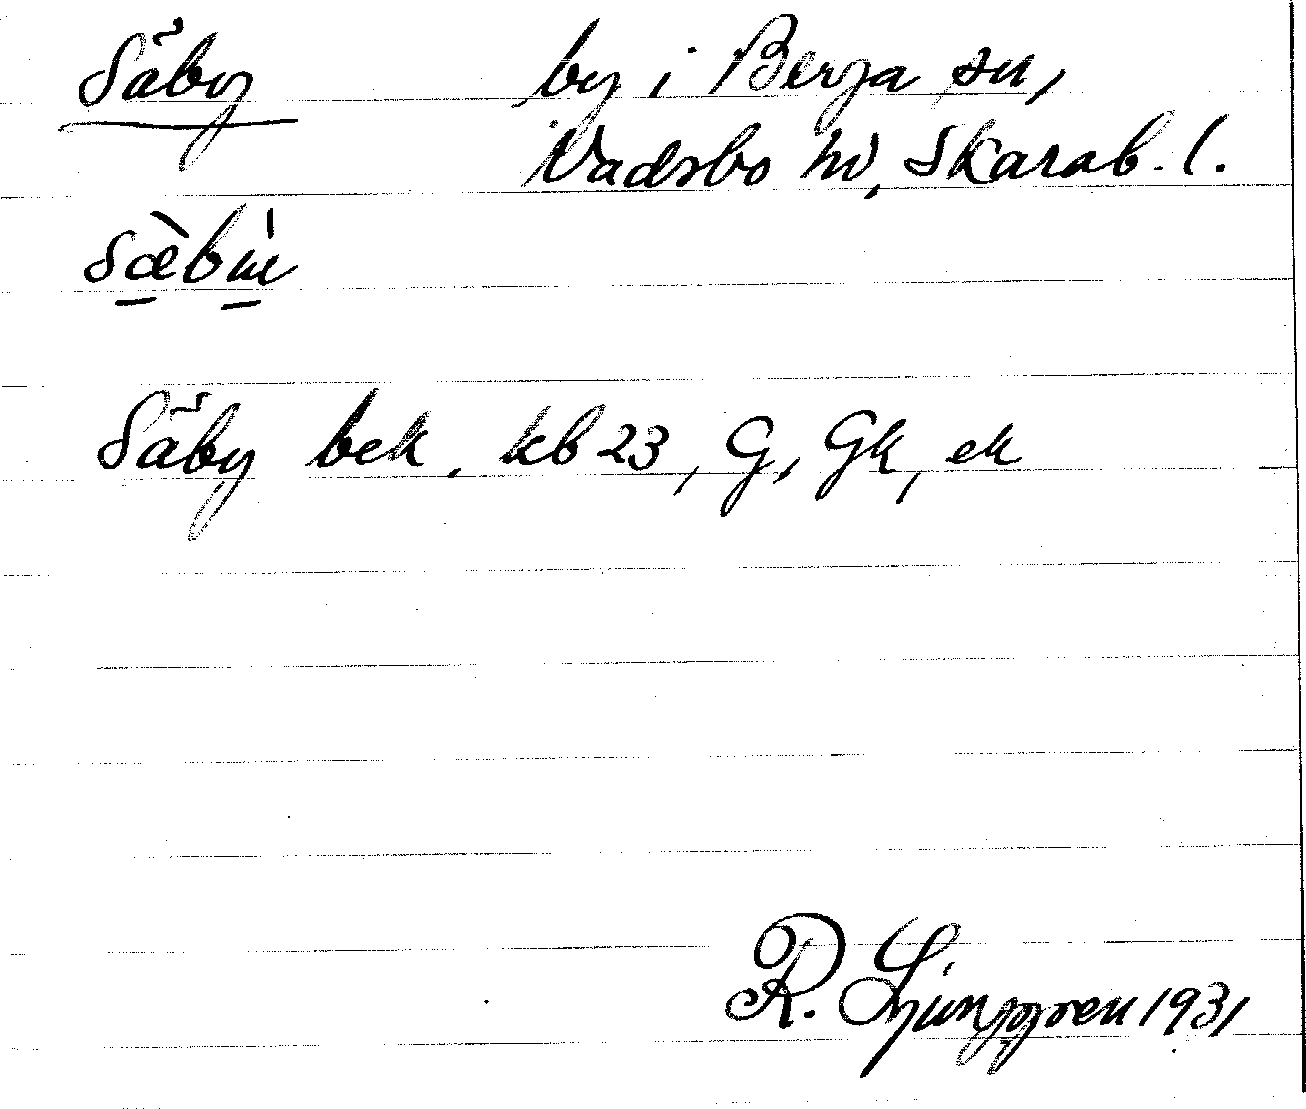 Säby by i Berga sn,
Vadsbo hd, Skarab. l.
Säby bek. kb 23, G, Gk, ek
R. Ljunggren 1931